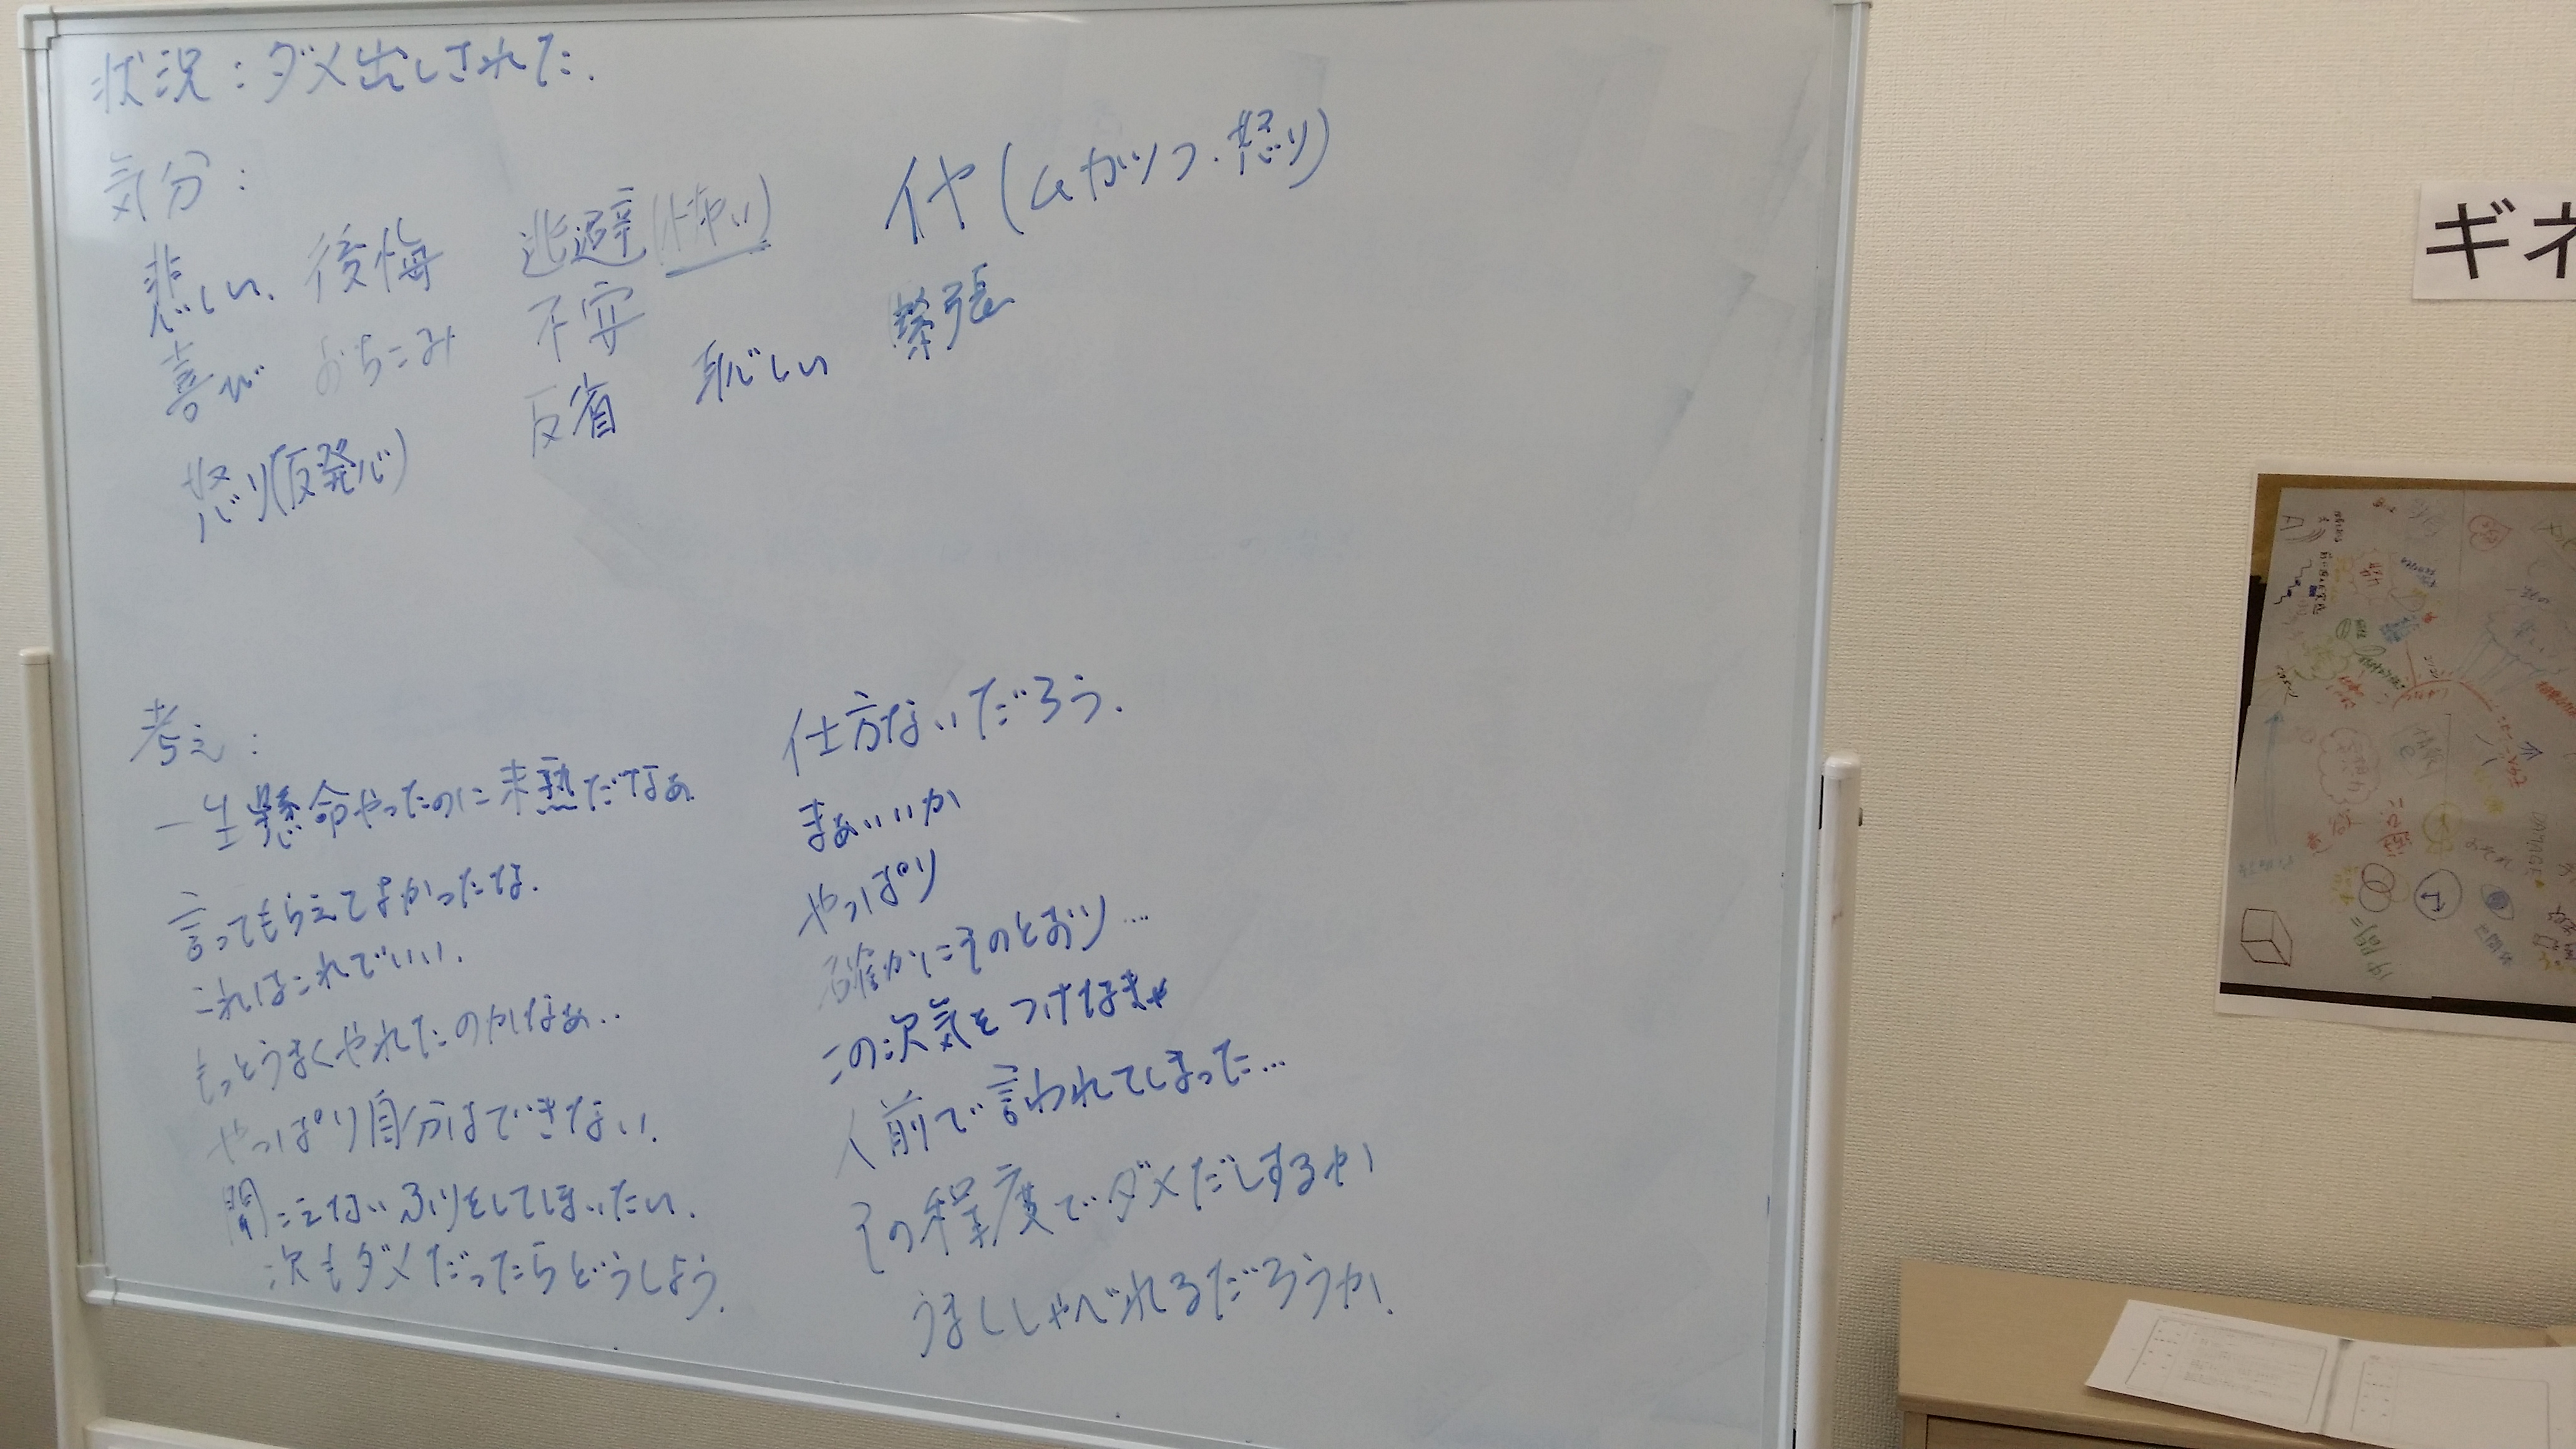 状況：ダメ出しされた.
気分：
悲しい. 後悔 逃避(怖い) イヤ(ムカツク・怒り)
喜び おちこみ 不安 恥しい 緊張
怒り(反発心) 反省
考え：
一生懸命やったのに未熟だなぁ
言ってもらえてよかったな.
これはこれでいい.
もっとうまくやれたのかなぁ..
やっぱり自分はできない.
聞こえないふりをしてしまいたい.
次もダメだったらどうしよう.
仕方ないだろう.
まぁいいか
やっぱり
確かにそのとおり…
この次気をつけなきゃ
人前で言われてしまった…
その程度でダメだしするか
うまくしゃべれるだろうか.
ギネ